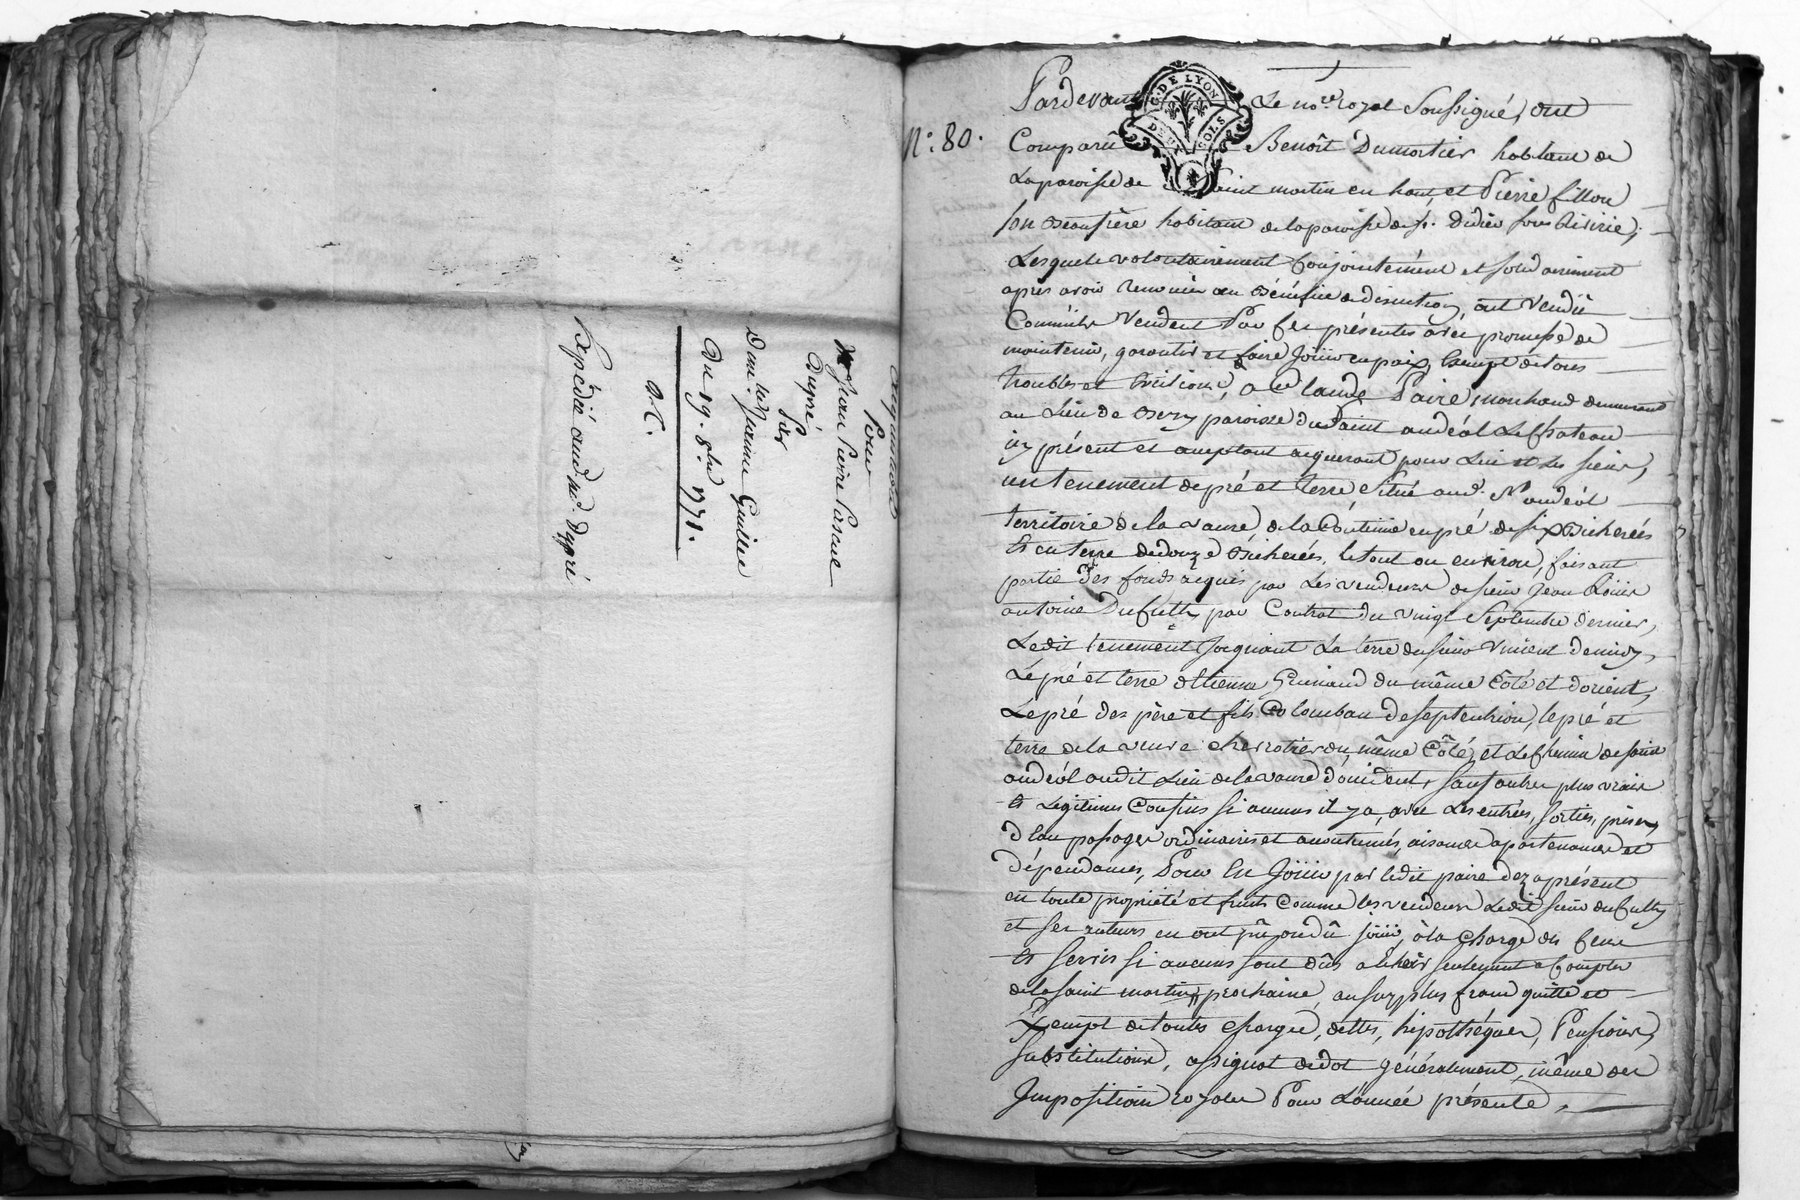 acquisition
Pour
Me Jean Pierre Persane
Dupré
Par
Dam.lle Jeanne Guillen
Du 19. 8bre 1771.
a. C.
Expédié aud. me. Dupré
N.º 80.
G. DE LYON
DEUX SOLS
Pardevant Le no.re royal Soussigné, ont
Comparû Benoît Dumortier habitant de
La paroisse de Saint martin en haut, et Pierre fillon
son Beaufrère habitant de la paroisse de st. Didier sous Riverie,
Lesquels volontairement Conjointement et solidairement
apres avoir renoncé au Bénéfice de discution, ont Vendû
Comme ils Vendent Par ses présentes avec promesse de
maintenir, garantir et faire Joüir en paix, Exempt de tous
troubles et Evictions, a Claude Paire marchand demeurant
au Lieu de paroisse dud. Saint andéol Le Chateau
icy présent et acceptant acquerant pour Lui et Les siens,
un tenement de pré et terre, situé aud. St. andéol
territoire de la vaure, de la Contenue en pré de six Bicherées
Et en terre de douze Bicherées, le tout ou environ, faisant
partie des fonds acquis par Les vendeurs de sieur Jean
antoine Dufulty par Contrat du vingt Septembre dernier,
Ledit tenement Joignant La terre du sieur Vincent de midy,
Le pré et terre d'Etienne Grimaud du même Côté et d'orient,
Le pré des père et fils Colomban de septentrion, le pré et
terre de la veuve chervotier du même Côté, et Le Chemin de saint
andéol audit Lieu de la vaure d'occident, sauf autres plus vrais
Et Légitimes Confins si aucuns il y a, avec Les entrées, sorties, prises
d'Eau passages ordinaires et accoutumés, aisances apartenances et
dépendances, Pour En Joüir par ledit paire dez aprésent
en toute propriété et fruits Comme les vendeurs Ledit sieur dufulty
et ses auteurs en ont pû ou dû joüir, à la Charge des Cens
Et Servis si aucuns sont dûs a Echoir seulement a Compter
de la Saint martin prochaine, au surplus franc quitte et
Exempt de toutes charges, dettes, hipothéques, Pensions,
Substitutions, assignat de dot généralement, même des
Impositions royales Pour L'année présente,